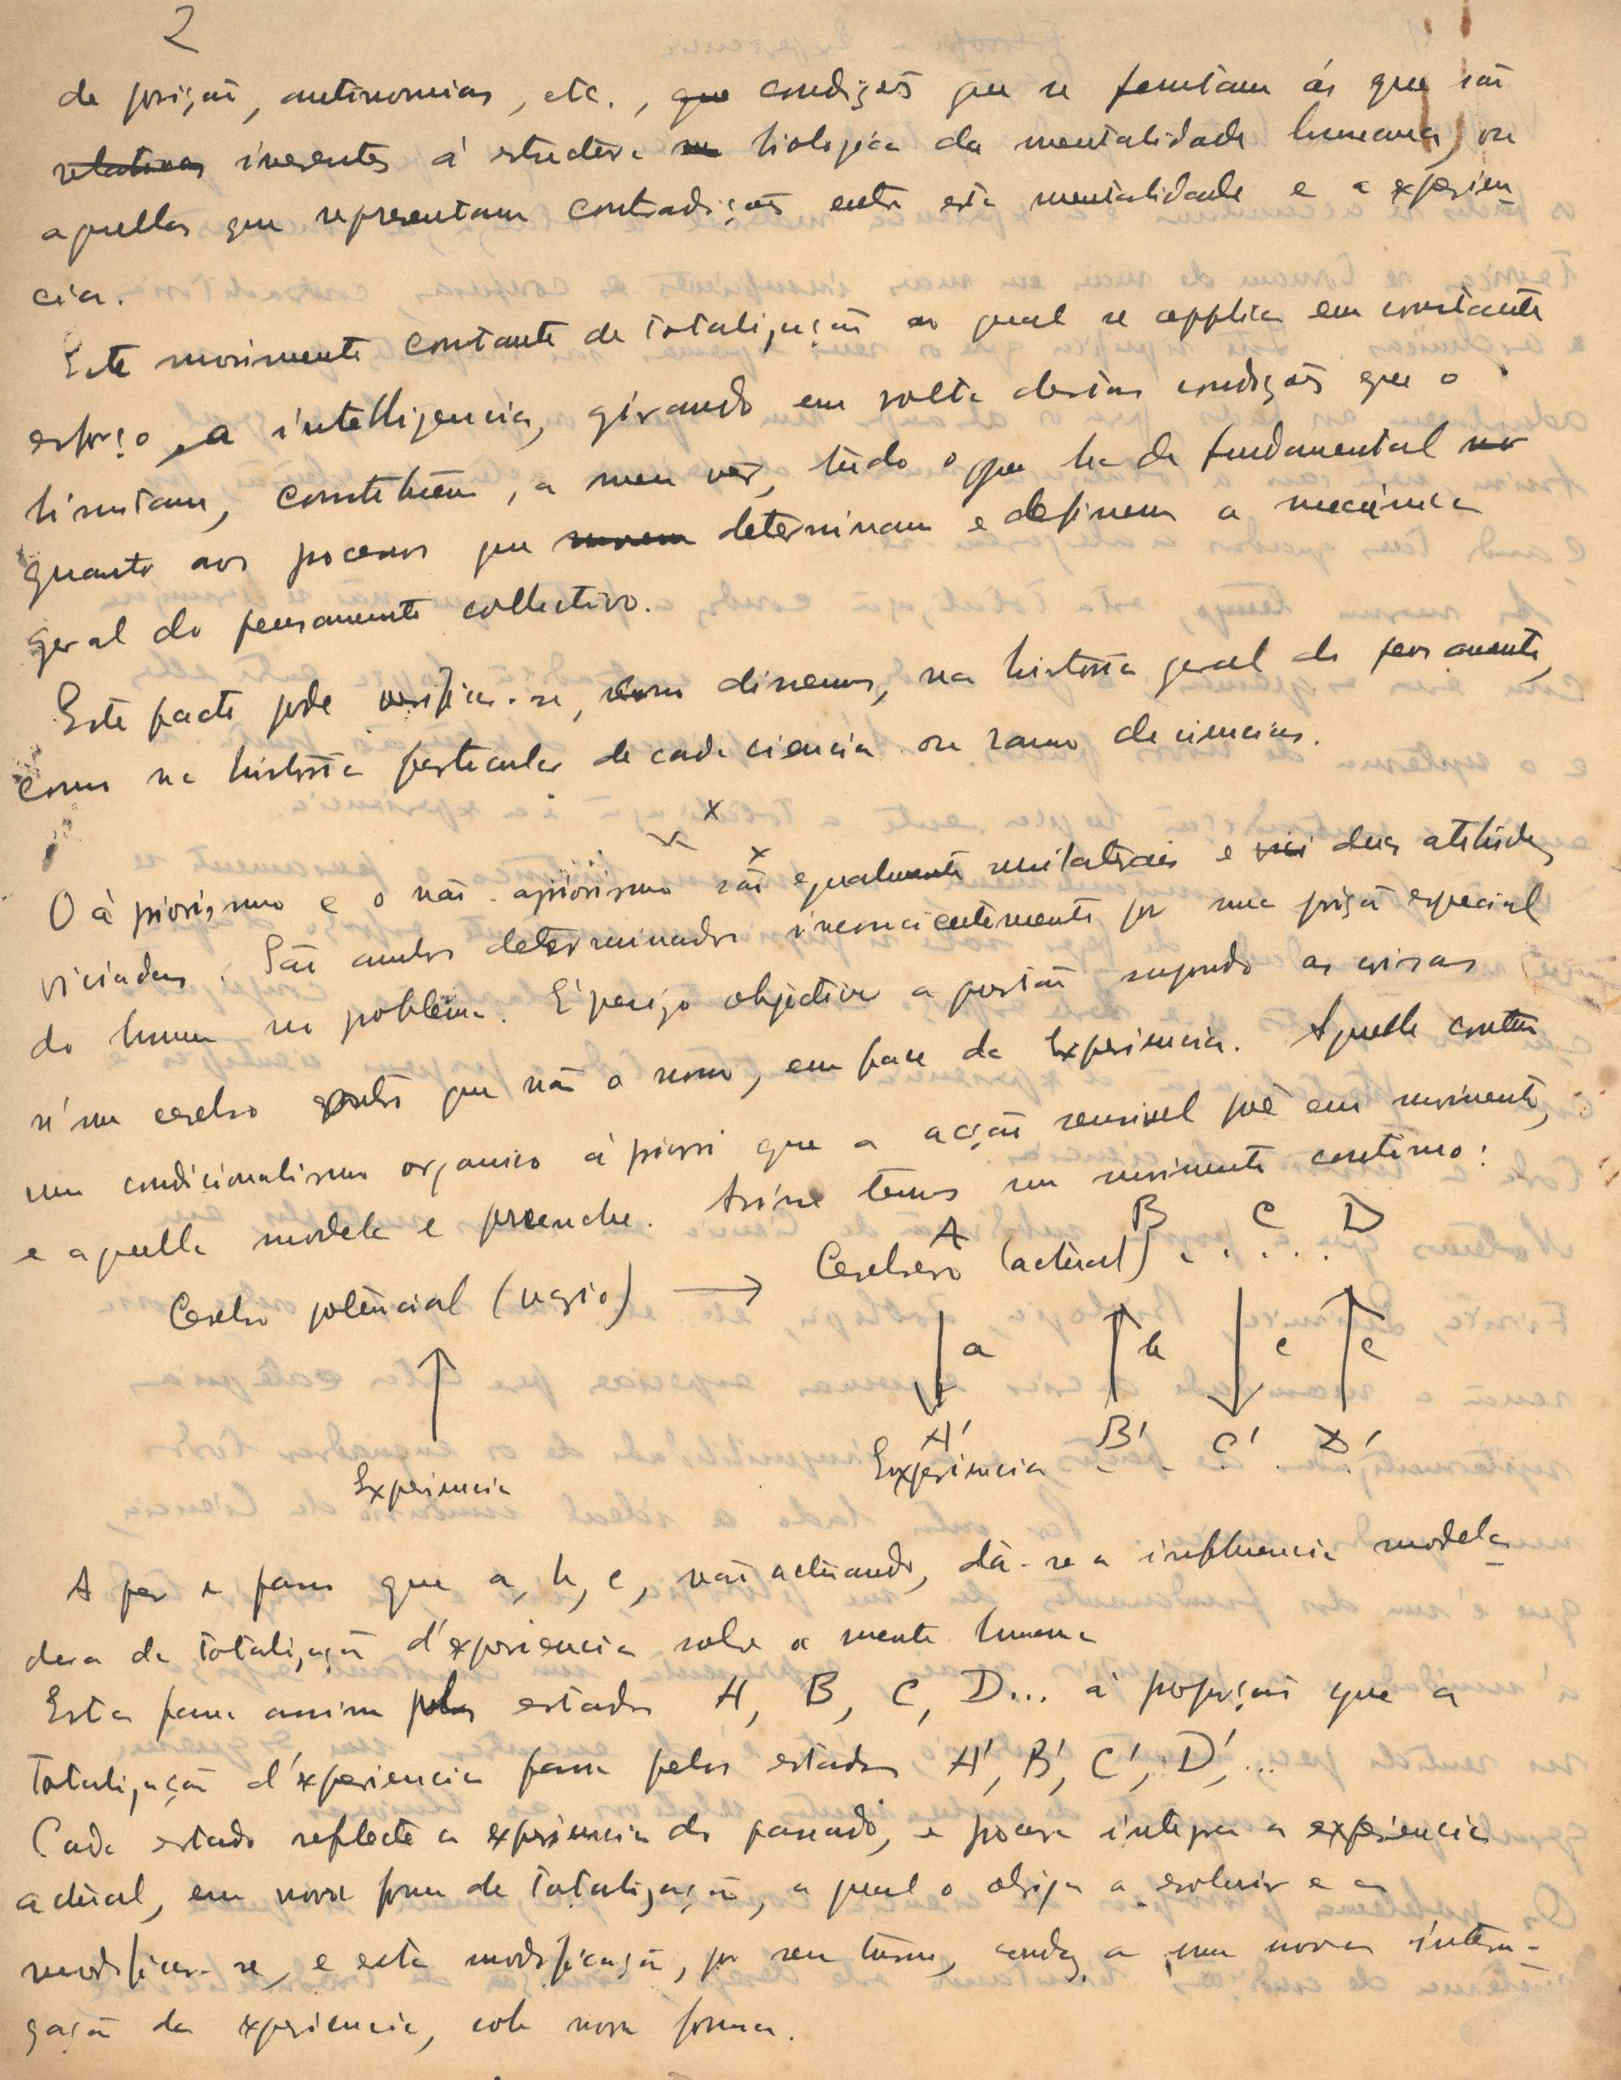 2
de posição, antinomias, etc., que condições que se juntam ás que são
relativas inerentes á estructura biologica da mentalidade humana, ou
aquellas que representam contradições entre esta mentalidade e a experien
cia.
Este movimento constante de totalização ao qual se applica em constante
esforço, a intelligencia, girando em volta destas condições que o
limitam, constituem, a meu vêr, tudo o que ha de fundamental no
quanto aos processos que movem determinam e definem a mecânica
geral do pensamento collectivo.
Este facto pode verificar-se, como dissemos, na historia geral do pensamento,
como na historia particular de cada ciencia ou ramo de ciencias.
x
O á priorismo e o não-apriorismo são egualmente unilateraes e duas atitudes
viciadas. São ambos determinados inconscientemente por uma posição especial
do homem no problema. E' perigo objectivar a questão suponho as coisas
n'um cerebro que não o nosso, em face da Experiencia. Aquelle contem
um condicionalismo organico á priori que a acção sensivel põe em movimento,
e aquella modela e preenche. Assim temos um movimento continuo:
A B C D
Cerebro potencial (vazio) → Cerebro (actual) . . . . .
a b c c
A' B' C' D'
Experiencia Experiencia . . . . .
A par e passo que a, b, c, vão actuando, dá-se a influencia modela
dora da totalização d'experiencia sobre a mente humana
Esta passa assim pelos estados A, B, C, D... á proporção que a
totalização d'experiencia passa pelos estados A', B', C', D',...
Cada estado reflecte a experiencia do passado, e procura integrar a experiencia
actual, em nova forma de totalização, a qual o obriga a evoluir e a
modificar-se, e esta modificação, por seu turno, conduz a uma nova interro-
gação da experiencia, sob nova forma.